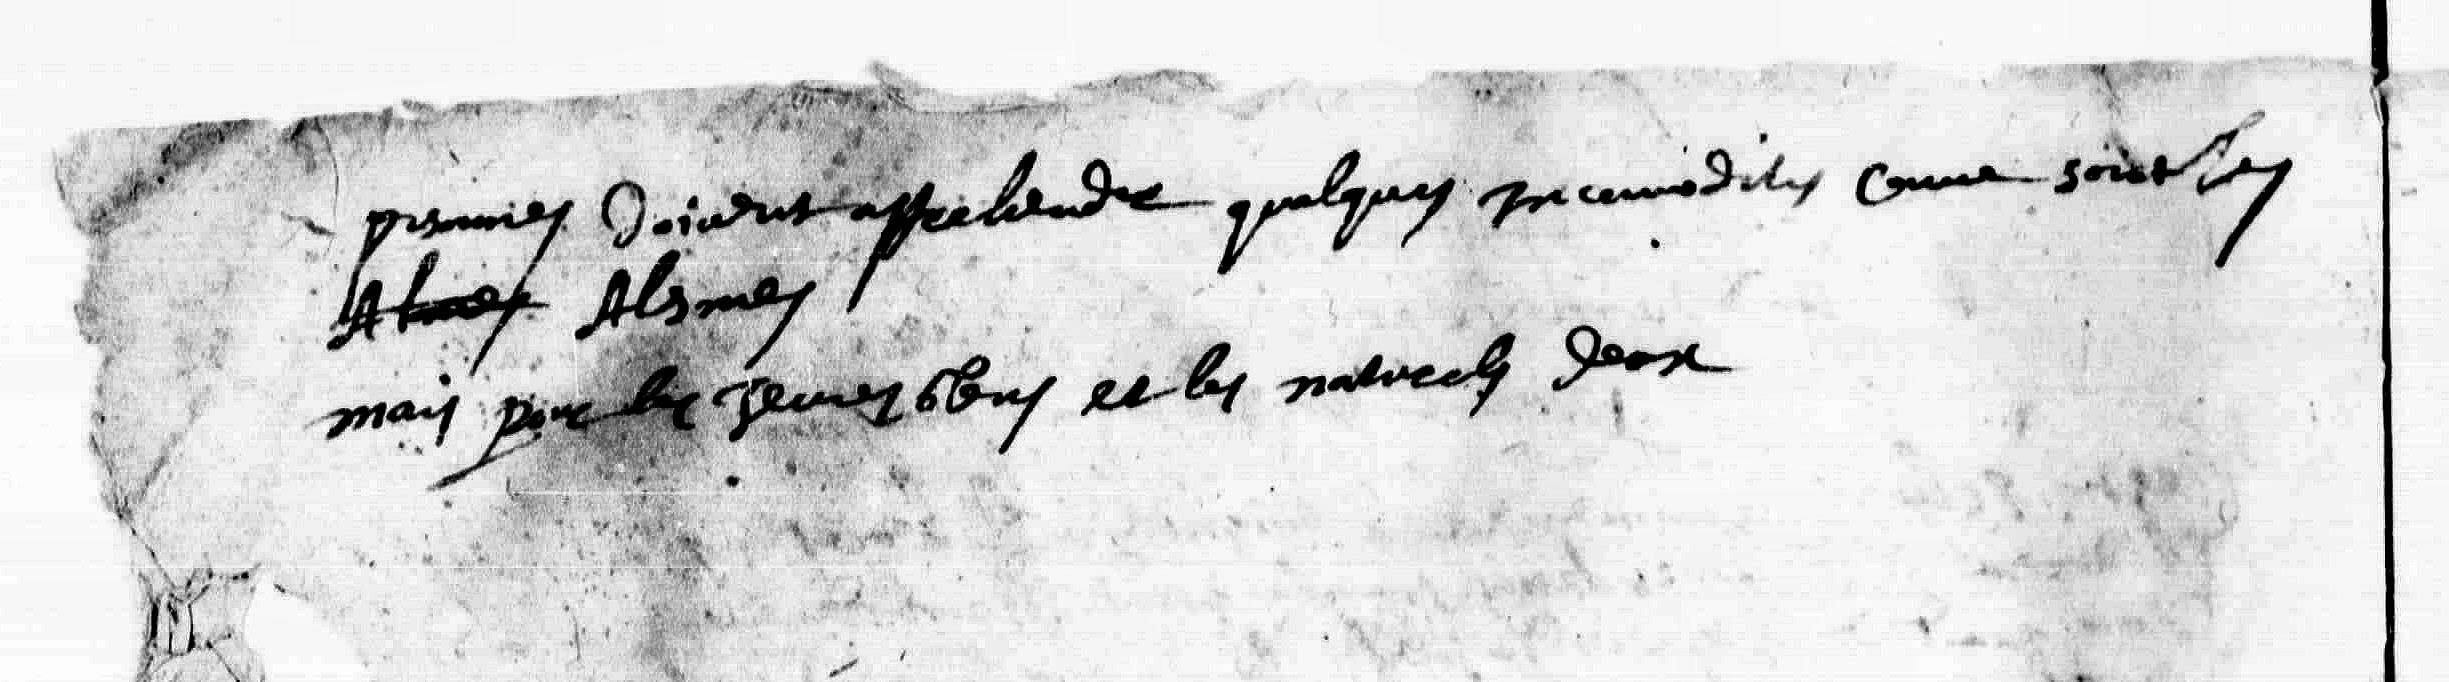 prsonnes doivent apprehendre quelques incomodites comme sont les
Almes Alsmes
mais pour les jeunes et les naturels deux